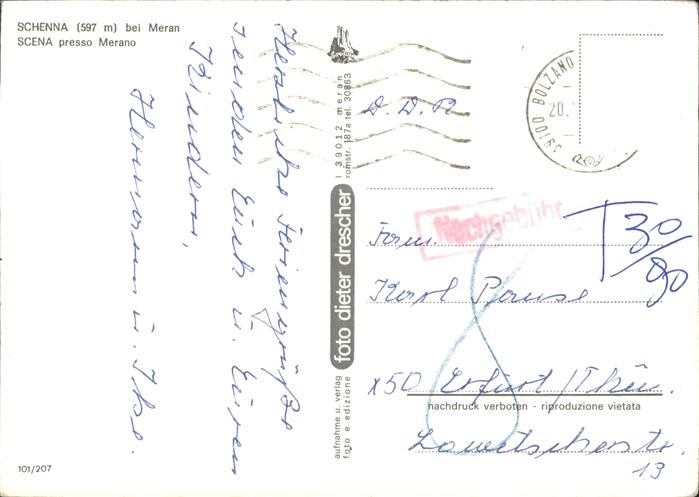 SCHENNA (597 m) bei Meran
SCENA presso Merano
Herzliche Feriengrüße
senden Euch u. Euren
Kindern,
Hermann u. Ilse.
101/207
foto dieter drescher
I 39012 meran
romstr. 187a tel. 30863
aufnahme u. verlag
foto e edizione
D. D. R
39100 BOLZANO
20.
Nachgebühr
T 30/90
8
Fam.
Karl
x50 Erfurt/Thür.
nachdruck verboten - riproduzione vietata
13